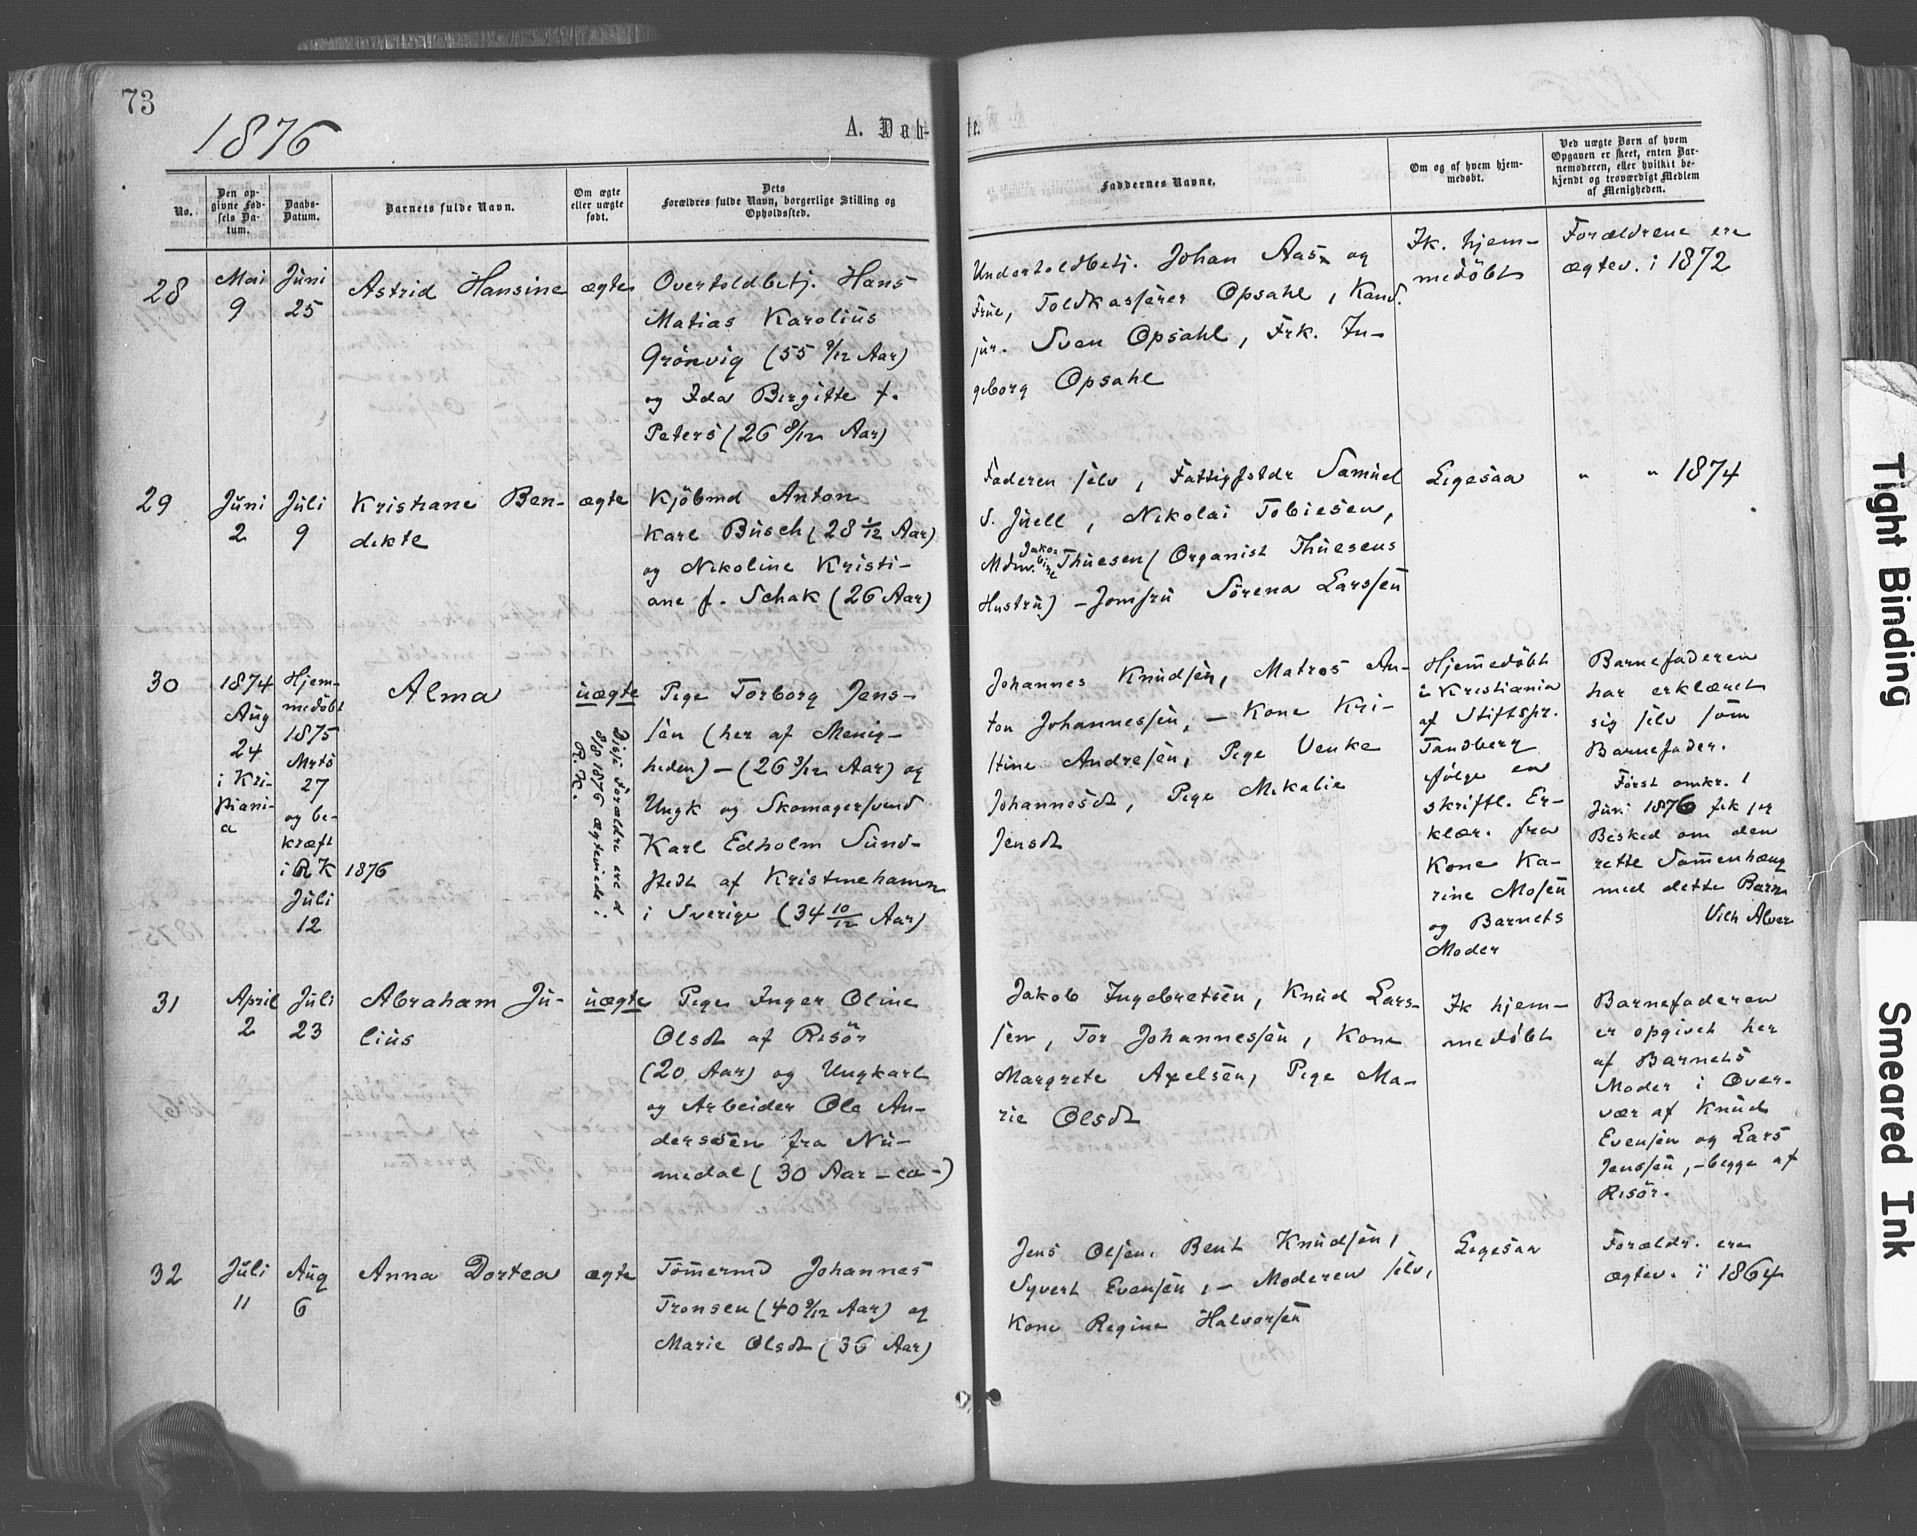 73
1876
A. Døb-
te.
No.
Den op-
givne Fød-
sels Da-
tum.
Daabs-
Datum.
Barnets fulde Navn.
Om ægte
eller uægte
født.
Dets
Forældres fulde Navn, borgerlige Stilling og
Opholdssted.
Faddernes Navne.
Om og af hvem hjem-
medøbt.
Ved uægte Børn af hvem
Opgaven er skeet, enten Bar-
nemoderen, eller hvilket be-
kjendt og troværdigt Medlem
af Menigheden.
28
Mai
9
Juni
25
Astrid Hansine
ægte
Overtoldbetj. Hans
Matias Karolius
Grönvig (55 9/12 Aar)
og Ida Birgitte f.
Peters (26 8/12 Aar)
Undertoldbetj. Johan Aas og
Frue, Toldkasserer Opsahl, Kand.
jur. Sven Opsahl, Frk. In-
geborg Opsahl
Ik. hjem-
medöbt
Forældrene ere
ægtev. i 1872
29
Juni
2
Juli
9
Kristiane Ben-
dikte
ægte
Kjöbmd Anton
Karl Busch (28 1/12 Aar)
og Nikoline Kristi-
ane f. Schak (26 Aar)
Faderen selv, Fattigfstdr Samuel
S. Juell, Nikolai Tobiesen,
Mdm. Jakobine Thuesen (Organist Thuesens
Hustru) - Jomfru Sörena Larssen
Ligesaa
" " 1874
30
1874
Aug
24
i Kri-
stiani-
a
Hjem-
medöbt
1875
Mrts
27
og be-
kræft
i R K 1876
Juli
12
Alma
uægte
Disse Forældre ere d
8/8 1876 ægteviede i
R. K.
Pige Torborg Jens-
sen (her af Menig-
heden) - (26 3/12 Aar) og
Ungk og Skomagersvend
Karl Edholm Sund-
stedt af Kristinehamn
i Sverige (34 10/12 Aar)
Johannes Knudsen, Matros An-
ton Johannessen, - Kone Kri-
stine Andresen, Pige Venke
Johannesdt, Pige Mikalie
Jensdt
Hjemmedöbt
i Kristiania
af Stiftspr.
Tandberg
ifölge en
skriftl. Er-
klær. fra
Kone Ka-
rine Mosen
og Barnets
Moder
Barnefaderen
har erklæret
sig selv som
Barnefader.
Först omkr. 1
Juni 1876 fik jeg
Besked om den
rette Sammenhæng
med dette Barn
Vilh Alver
31
April
2
Juli
23
Abraham Ju-
lius
uægte
Pige Inger Oline
Olsdt af Risör
(20 Aar) og Ungkarl
og Arbeider Ole An-
derssen fra Nu-
medal (30 Aar - ca -)
Jakob Ingebretsen, Knud Lars-
sen, Tor Johannessen, Kone
Margrete Axelsen, Pige Ma-
rie Olsdt
Ik hjem-
medöbt
Barnefaderen
er opgivet her
af Barnets
Moder i Over-
vær af Knud
Evensen og Lars
Jenssen, - begge af
Risör.
32
Juli
11
Aug
6
Anna Dortea
ægte
Tömermd Johannes
Tronsen (40 9/12 Aar) og
Marie Olsdt (36 Aar)
Jens Olsen, Bent Knudsen,
Syvert Evensen, - Moderen selv,
Kone Regine Halvorsen
Ligesaa
Forældr. ere
ægtev. i 1864
Tight Binding
Smeared Ink